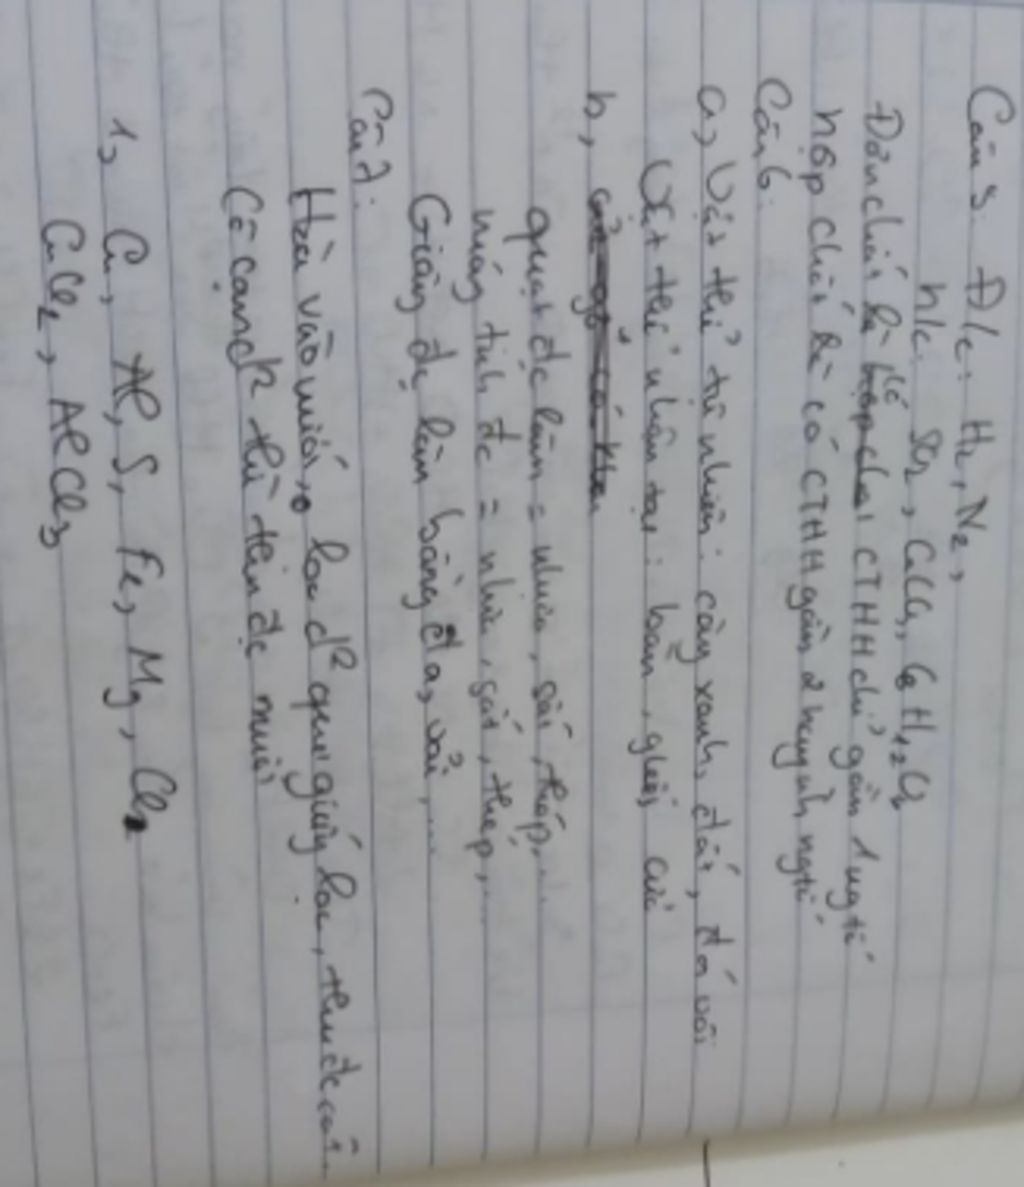 Câu 5. Đ/c: H2, N2,
h/c: SO2, CaCO3, C6H12O6
Đơn chất là do CTHH chỉ gồm 1 ngtố
hợp chất là có CTHH gồm 2 nguyên ngtố
Câu 6.
a, Vật thể tự nhiên: cây xanh, đất, đá vôi
Vật thể nhân tạo: bàn, ghế,
b,
quạt đc làm = nhựa, sắt, thép,...
máy tính đc = nhựa, sắt, thép,...
Giày đc làm bằng da, vải,...
Câu 7.
Hòa vào nước, lọc d² qua giấy lọc, thu đc cát.
Cô cạn d² thì thu đc muối
1, Cu, Al, S, Fe, Mg, Cl2
CuCl2, AlCl3